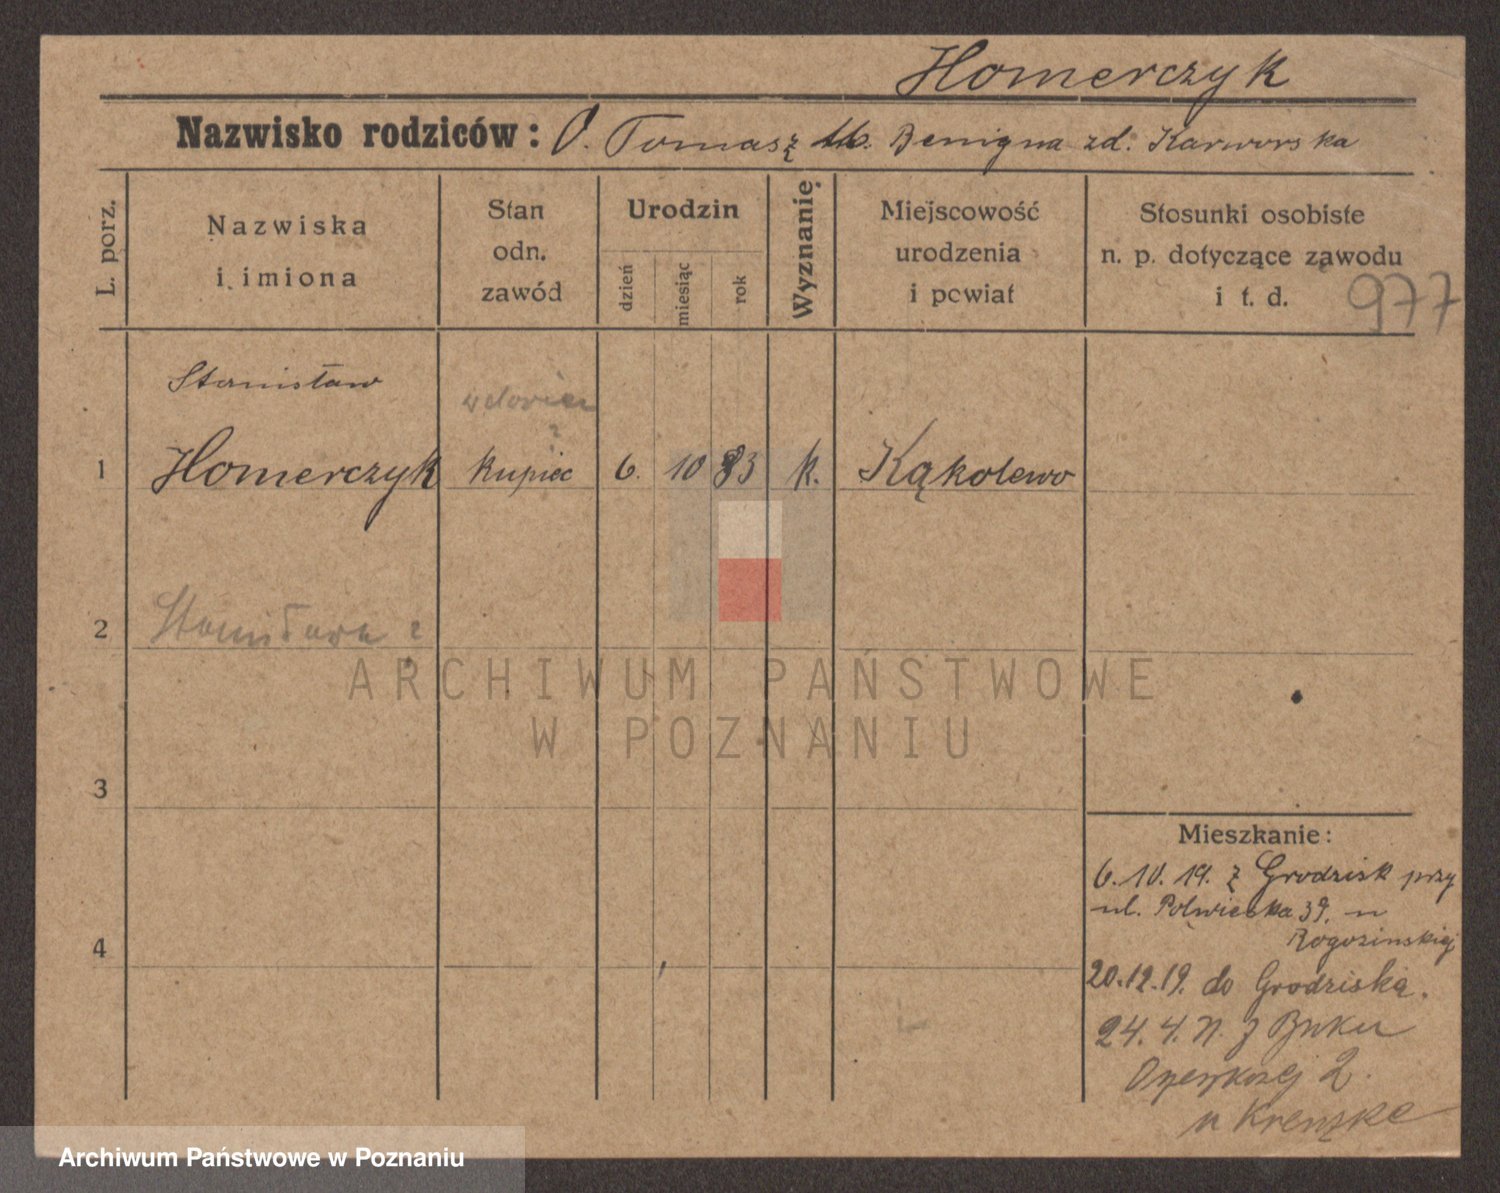 Homerczyk
Nazwisko rodziców: O. Tomasz M. Benigna zd. Karworska
L. porz.
Nazwiska
i imiona
Stan
odn.
zawód
Urodzin
dzień
miesiąc
rok
Wyznanie
Miejscowość
urodzenia
i powiat
Stosunki osobiste
n. p. dotyczące zawodu
i t. d.
977
Stanisław
wdowiec
?
1 Homerczyk kupiec 6. 10 83 k. Kąkolewo
2 Stanisława ?
3
4
Mieszkanie:
6.10.19. z Grodzisk przy
ul. Półwieska 39. u
Rogozinskiej
20.12.19. do Grodziska.
24. 4. z Buku
2.
u
ARCHIWUM PAŃSTWOWE
W POZNANIU
Archiwum Państwowe w Poznaniu